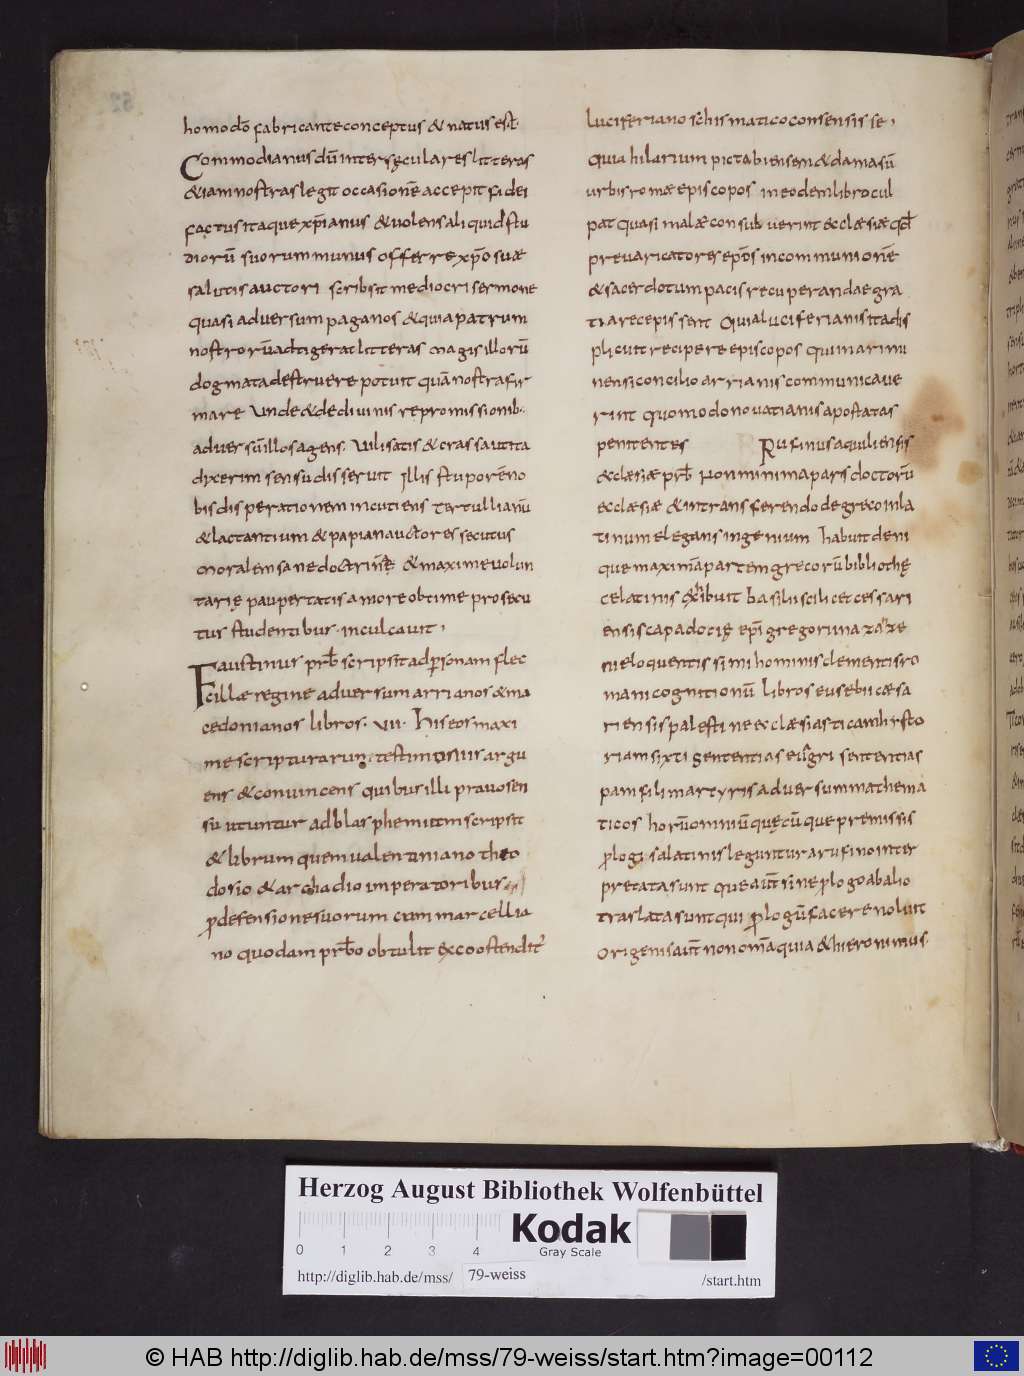 homo dō fabricante conceptus & natus est.
Commodianus dū inter sęculares litteras
& iam nostras legit occasionē accepit fidei
factus itaque xp̄ianus & uolens aliquid stu
diorū suorum munus offerre xp̄o suæ
salutis auctori scribsit mediocri sermone
quasi aduersum paganos & quia patrum
nostrorū adtigerat litteras magis illorū
dogmata destruere potuit quā nostra fir
mare Unde & de diuinis repromissionib.
aduersū illos agens. Uili satis & crassa ut ita
dixerim sensu disseruit Illis stuporē no
bis disperationem incutiens tertullianū
& lactantium & papian auctores secutus
moralem sane doctrinē & maxime uolun
tarię paupertatis amore obtime prosecu
tus studentibus inculcauit.
Faustinus prb̄ scripsit ad personam flec
cillæ regine aduersum arrianos & ma
cedonianos libros. vii. His eos maxi
me scripturarum testimoniis argu
ens & conuincens quibus illi prauo sen
sū utuntur ad blasphemiam scripsit
& librum quem ualentiniano theo
dosio & archadio imperatoribus
pro defensione suorum cum marcellia
no quodam prb̄o obtulit ex co ostendit
luciferiano schismatico consensisse.
quia hilarium pictabiensem & damasū
urbis romæ episcopos in eodem libro cul
pat quasi malæ consuluerint æclæsiæ qđ
preuaricatores ep̄os in communionē
& sacerdotum pacis recuperandae gra
tia recepissent Quia luciferianis ita dis
plicuit recipere episcopos qui in arimi
nensi concilio arrianis communicaue
rint quomodo nouatianis apostatas
penitentes Rufinus aquiliensis
æclæsiæ prb̄ non minima pars doctorū
ecclæsiæ & in transferendo de greco in la
tinum elegans ingenium habuit deni
que maximā partem grecorū bibliothę
ce latinis exibuit basilii scilicet cessari
ensis capadocię ep̄i gregori nazanze
ni eloquentissimi hominis clementis ro
mani cognitionū libros eusebii cæsa
riensis palestine ecclæsiasticam histo
riam sixti sententias euagri sententias
pamfili martyris aduersum mathema
ticos horū omniū quęcūque premissis
prologis a latinis leguntur a rufino inter
pretata sunt que autē sine prologo ab alio
traslata sunt qui prologū facere noluit
Origenis autē non omīa quia & hieronimus.
Herzog August Bibliothek Wolfenbüttel
0 1 2 3 4
Kodak
Gray Scale
http://diglib.hab.de/mss/ 79-weiss /start.htm
© HAB http://diglib.hab.de/mss/79-weiss/start.htm?image=00112